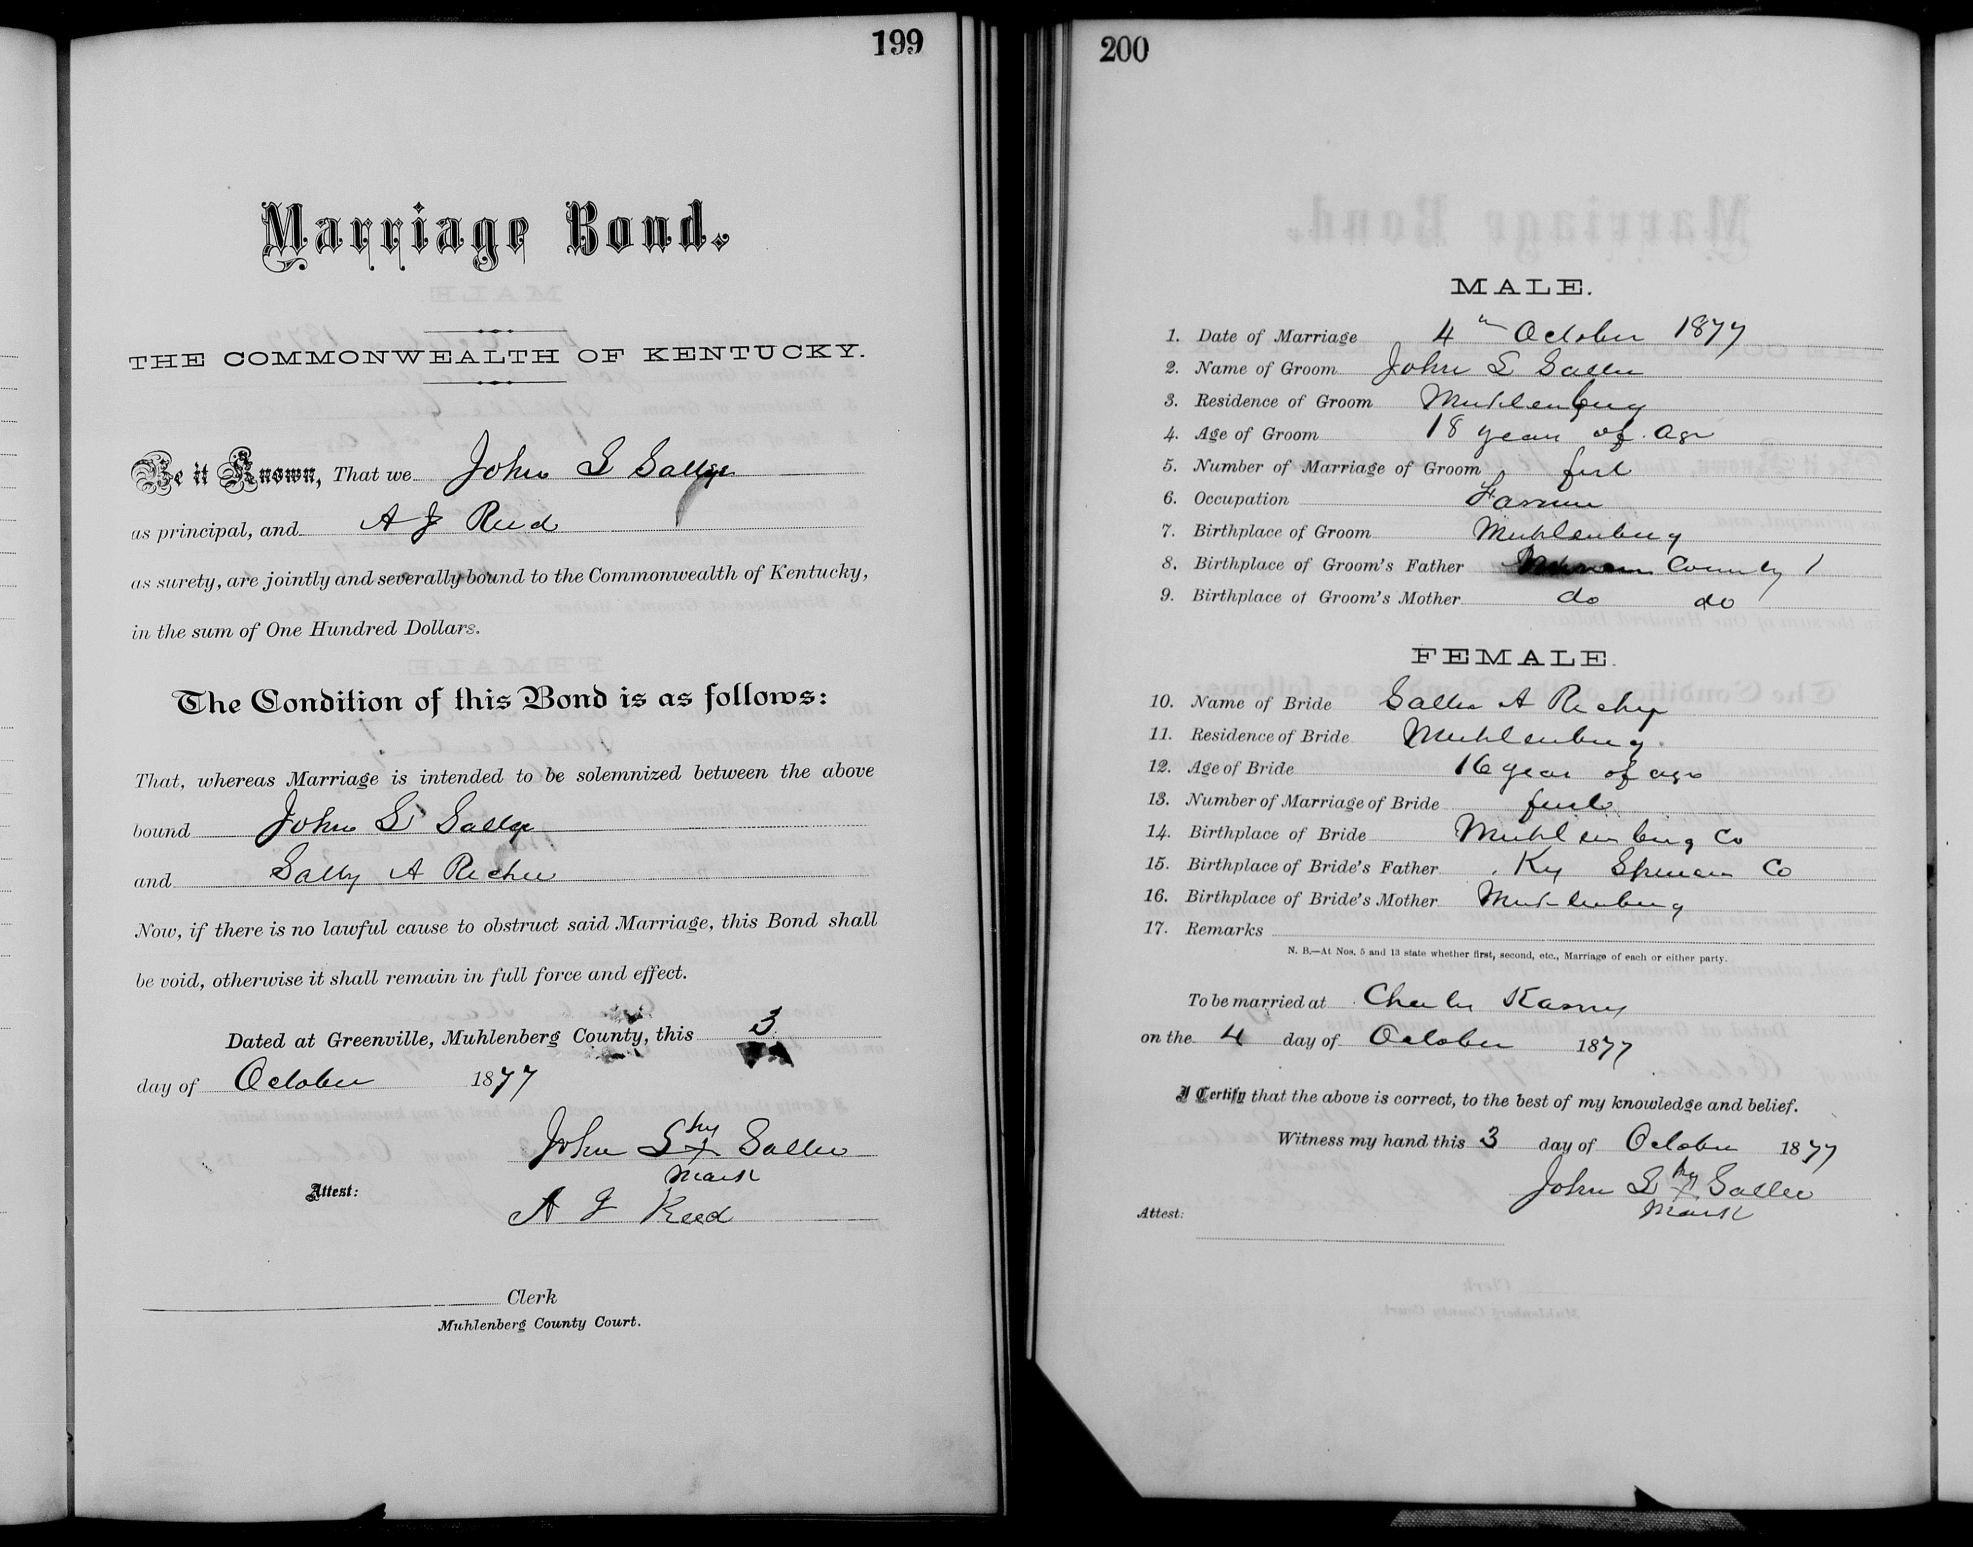 199
Marriage Bond.
THE COMMONWEALTH OF KENTUCKY.
Be it Known, That we John S Sallee
as principal, and A J Reed
as surety, are jointly and severally bound to the Commonwealth of Kentucky,
in the sum of One Hundred Dollars.
The Condition of this Bond is as follows:
That, whereas Marriage is intended to be solemnized between the above
bound John S Sallee
and Sally A Richee
Now, if there is no lawful cause to obstruct said Marriage, this Bond shall
be void, otherwise it shall remain in full force and effect.
Dated at Greenville, Muhlenberg County, this 3
day of October 1877
John S his x mark Sallee
Attest:
A J Reed
Clerk
Muhlenberg County Court.
200
MALE.
1. Date of Marriage 4th October 1877
2. Name of Groom John S Sallee
3. Residence of Groom Muhlenburg
4. Age of Groom 18 years of age
5. Number of Marriage of Groom first
6. Occupation Farmer
7. Birthplace of Groom Muhlenburg
8. Birthplace of Groom's Father County
9. Birthplace of Groom's Mother do do
FEMALE.
10. Name of Bride Sallie A Richey
11. Residence of Bride Muhlenburg
12. Age of Bride 16 year of age
13. Number of Marriage of Bride first
14. Birthplace of Bride Muhlenburg Co
15. Birthplace of Bride's Father Ky Spencer Co
16. Birthplace of Bride's Mother Muhlenburg
17. Remarks
N. B.—At Nos. 5 and 13 state whether first, second, etc., Marriage of each or either party.
To be married at Charles
on the 4 day of October 1877
I Certify that the above is correct, to the best of my knowledge and belief.
Witness my hand this 3 day of October 1877
John S his x mark Sallee
Attest: